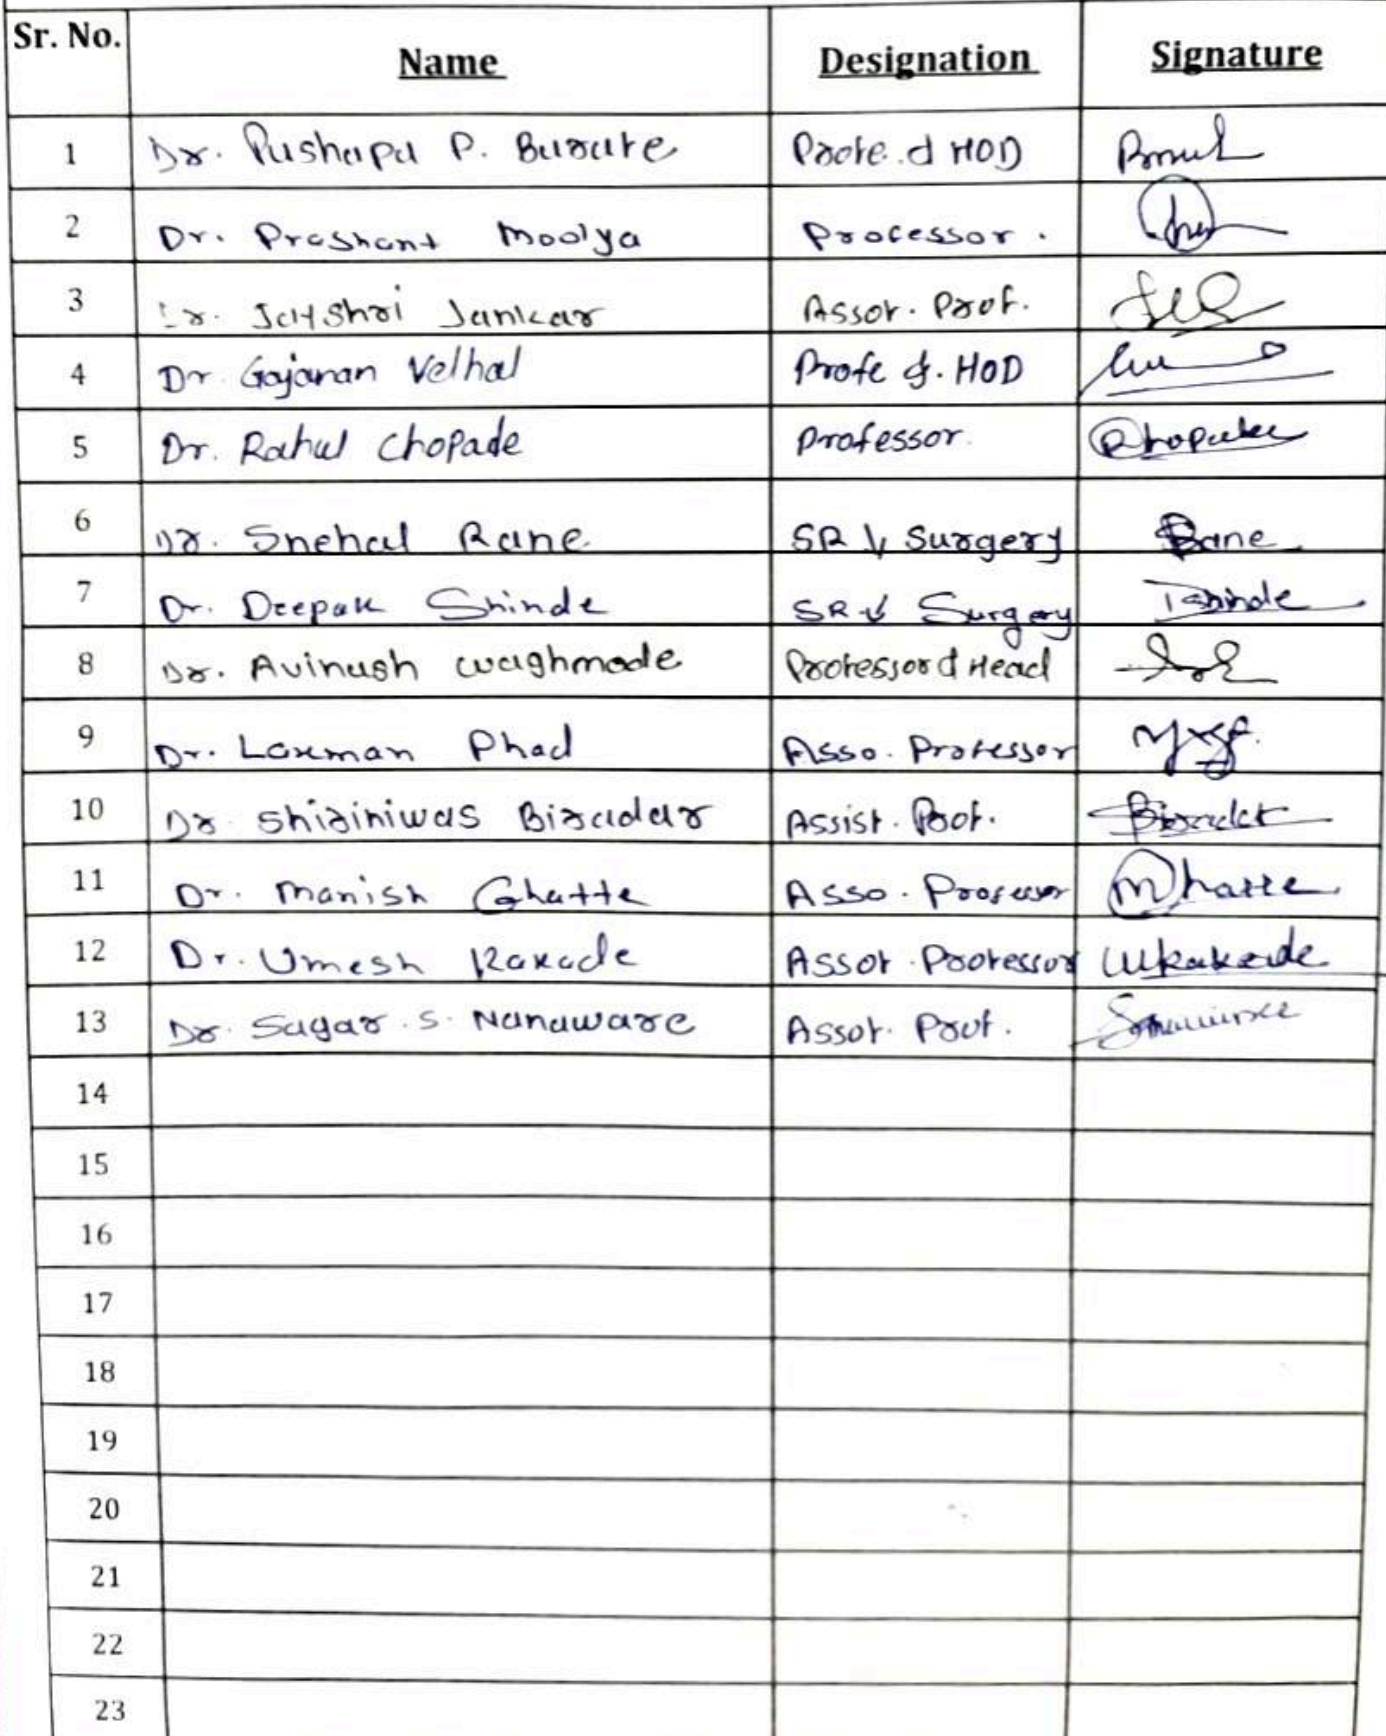 Sr. No. Name Designation Signature
1 Dr. Pushapa P. Burute Profe. & HOD
2 Dr. Prashant Moolya Professor.
3 Dr. Jayshri Jankar Assot. Prof.
4 Dr. Gajanan Velhal Profe &. HOD
5 Dr. Rahul Chopade Professor. Rhopade
6 Dr. Snehal Rane SR Surgery Rane
7 Dr. Deepak Shinde SR Surgery Dshinde
8 Dr. Avinash Waghmode Professor & Head
9 Dr. Laxman Phad Asso. Professor
10 Dr. Shiriniwas Biradar Assist. Prof. Biradar
11 Dr. Manish Ghatte Asso. Professor Mhatte
12 Dr. Umesh Kakade Assot. Professor Ukakade
13 Dr. Sagar. S. Nanaware Assot. Prof.
14
15
16
17
18
19
20
21
22
23